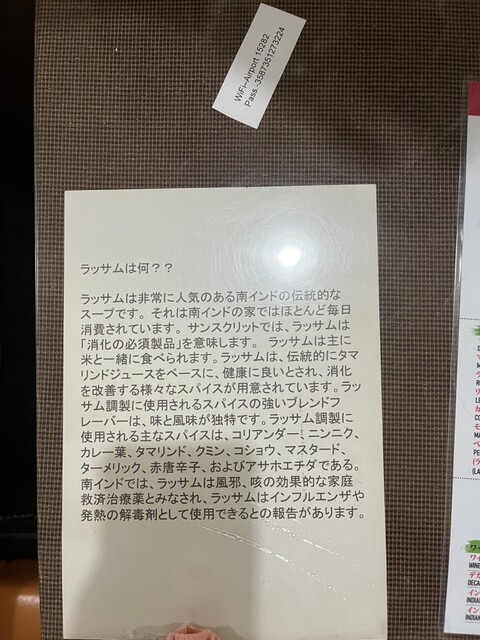 WiFi-Airport 15282
Pass-3587351273224
ラッサムは何？？
ラッサムは非常に人気のある南インドの伝統的な
スープです。それは南インドの家ではほとんど毎日
消費されています。サンスクリットでは、ラッサムは
「消化の必須製品」を意味します。 ラッサムは主に
米と一緒に食べられます。ラッサムは、伝統的にタマ
リンドジュースをベースに、健康に良いとされ、消化
を改善する様々なスパイスが用意されています。ラッ
サム調製に使用されるスパイスの強いブレンドフ
レーバーは、味と風味が独特です。ラッサム調製に
使用される主なスパイスは、コリアンダー、ニンニク、
カレー葉、タマリンド、クミン、コショウ、マスタード、
ターメリック、赤唐辛子、およびアサホエチダである。
南インドでは、ラッサムは風邪、咳の効果的な家庭
救済治療薬とみなされ、ラッサムはインフルエンザや
発熱の解毒剤として使用できるとの報告があります。